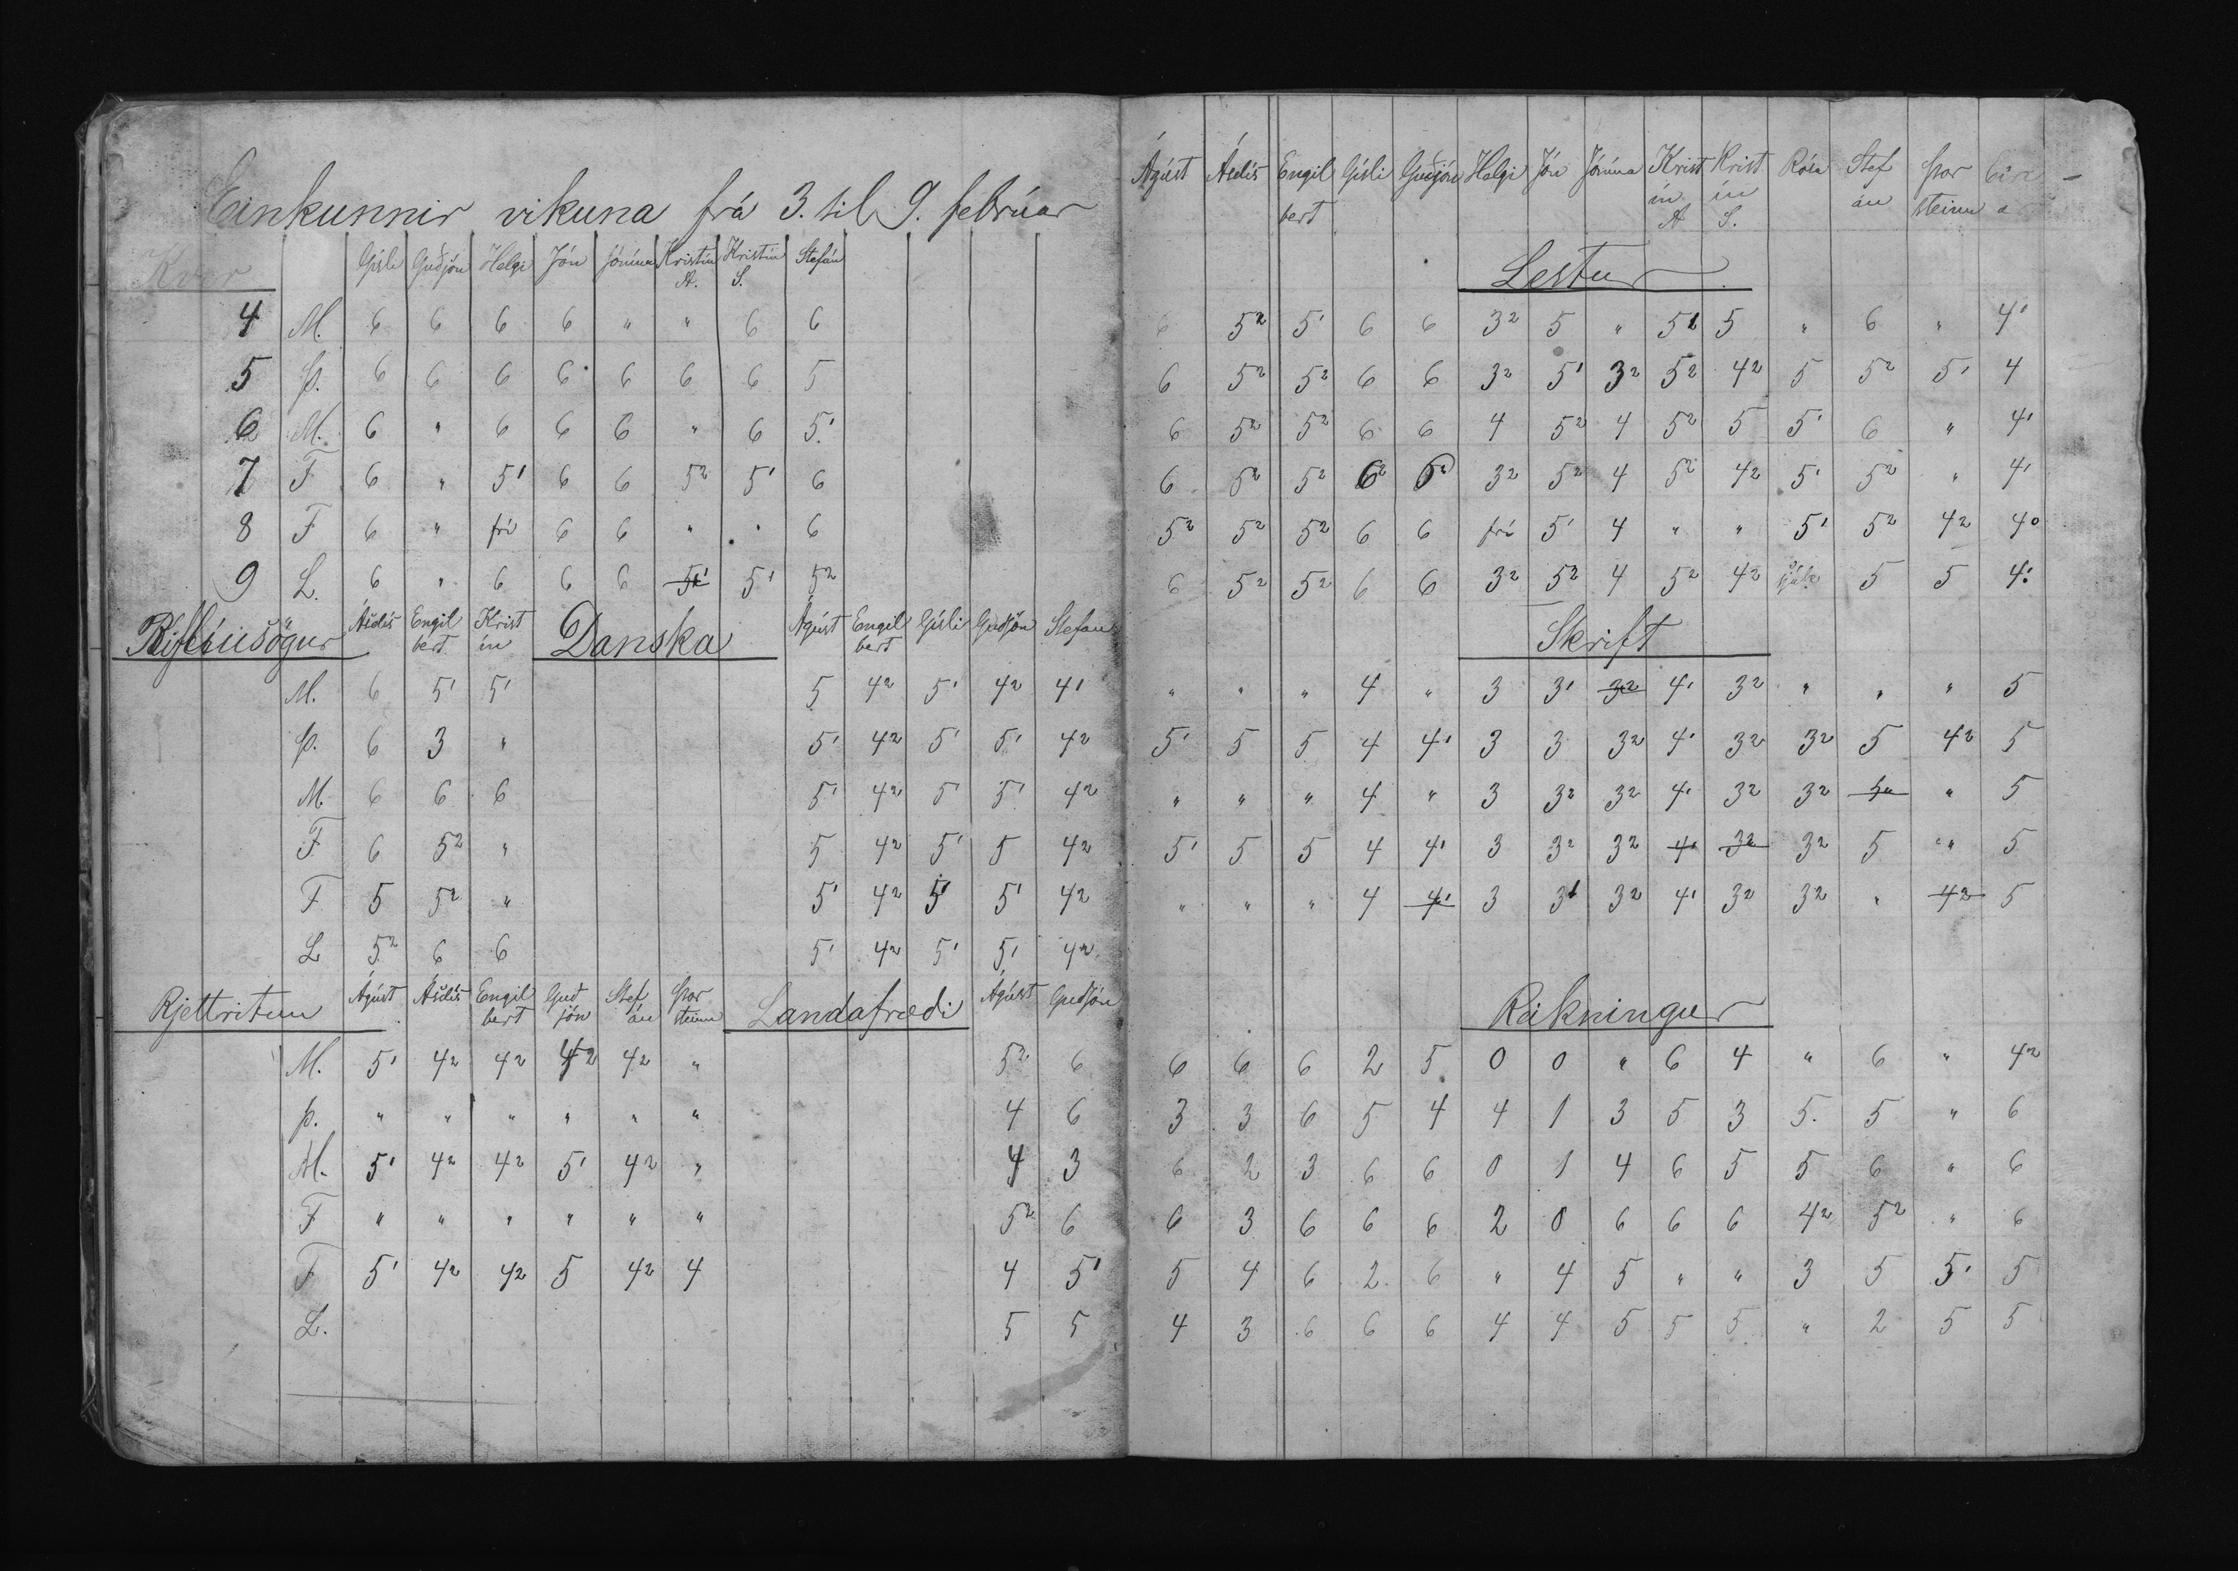 Einkunnir vikuna frá 3. til 9. febrúar
Kver Gísli Guðjón Helgi Jón Jónína Kristín A. Kristín S. Stefán
4 M. 6 6 6 6 " " 6 6
5 Þ. 6 6 6 6 6 6 6 5
6 M. 6 " 6 6 6 " 6 5¹
7 F 6 " 5¹ 6 6 5² 5¹ 6
8 F 6 " frí 6 6 " " 6
9 L. 6 " 6 6 6 5¹ 5¹ 5²
Biflíusögur Ásdís Engilbert Kristín Danska Ágúst Engilbert Gísli Guðjón Stefán
M. 6 5¹ 5¹ 5 4² 5¹ 4² 4¹
Þ. 6 3 " 5¹ 4² 5¹ 5¹ 4²
M. 6 6 6 5¹ 4² 5¹ 5¹ 4²
F 6 5² " 5 4² 5¹ 5 4²
F 5 5² " 5¹ 4² 5¹ 5¹ 4²
L 5² 6 6 5¹ 4² 5¹ 5¹ 4²
Rjettritun Ágúst Ásdís Engilbert Guðjón Stefán Þorsteinn Landafræði Ágúst Guðjón
M. 5¹ 4² 4² 4² 4² " 5² 6
Þ. " " " " " " 4 6
M. 5¹ 4² 4² 5¹ 4² " 4 3
F " " " " " " 5² 6
F 5¹ 4² 4² 5 4² 4 4 5¹
L. 5 5
Ágúst Ásdís Engilbert Gísli Guðjón Helgi Jón Jónína Kristín A Kristín S. Rósa Stefán Þorsteinn
Lestur
6 5² 5¹ 6 6 3² 5 " 5² 5 " 6 " 4¹
6 5² 5² 6 6 3² 5¹ 3² 5² 4² 5 5² 5¹ 4
6 5² 5² 6 6 4 5² 4 5² 5 5¹ 6 " 4¹
6 5² 5² 6² 6² 3² 5² 4 5² 4² 5¹ 5² " 4¹
5² 5² 5² 6 6 frí 5¹ 4 " " 5¹ 5² 4² 4⁰
6 5² 5² 6 6 3² 5² 4 5² 4² 5 5 4¹
Skrift
" " " 4 " 3 3¹ 3² 4¹ 3² " " " 5
5¹ 5 5 4 4¹ 3 3 3² 4¹ 3² 3² 5 4² 5
" " " 4 " 3 3² 3² 4¹ 3² 3² " 5
5¹ 5 5 4 4¹ 3 3² 3² 4¹ 3² 3² 5 " 5
" " " 4 4¹ 3 3¹ 3² 4¹ 3² 3² " 4² 5
Reikningur
6 6 6 2 5 0 0 " 6 4 " 6 " 4²
3 3 6 5 4 4 1 3 5 3 5 5 " 6
6 2 3 6 6 0 1 4 6 5 5 6 " 6
6 3 6 6 6 2 0 6 6 6 4² 5² " 6
5 4 6 2 6 " 4 5 " " 3 5 5¹ 5
4 3 6 6 6 4 4 5 5 5 " 2 5 5